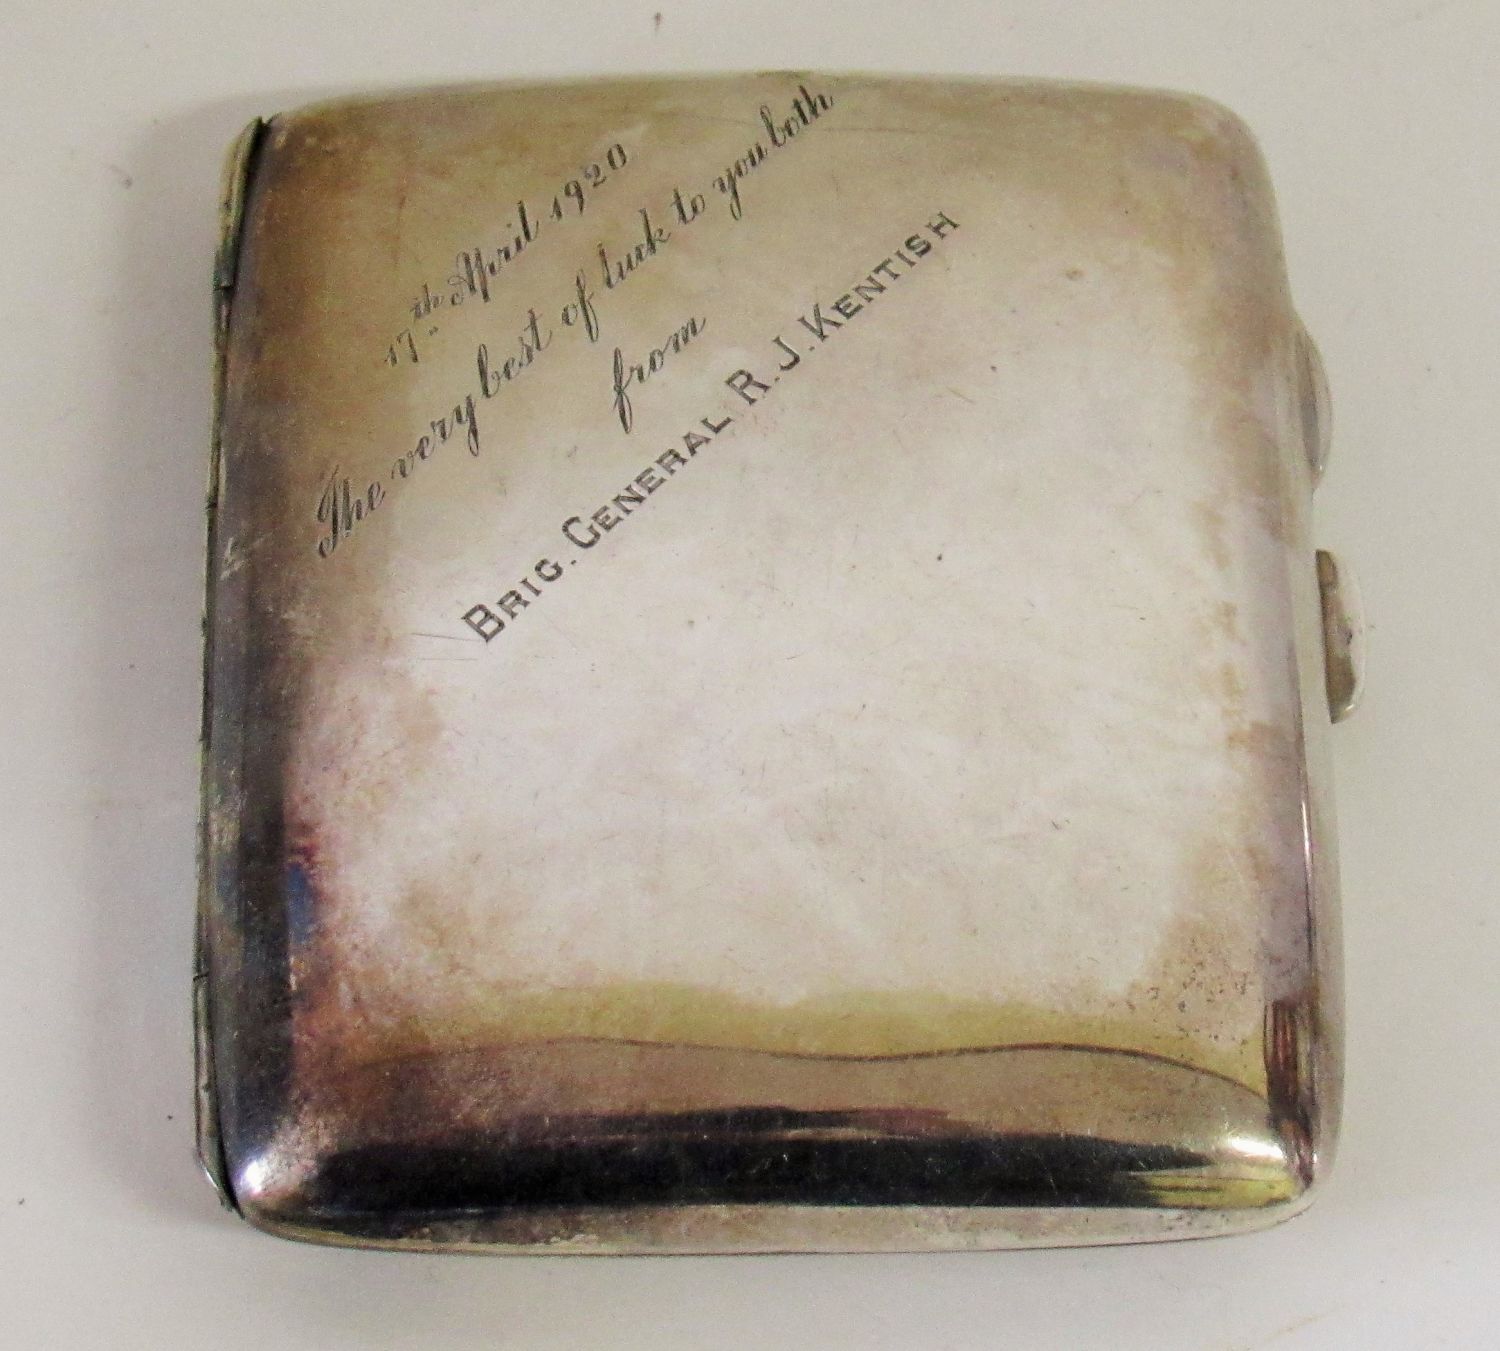 17th April 1920
The very best of luck to you both
from
BRIG. GENERAL R. J. KENTISH